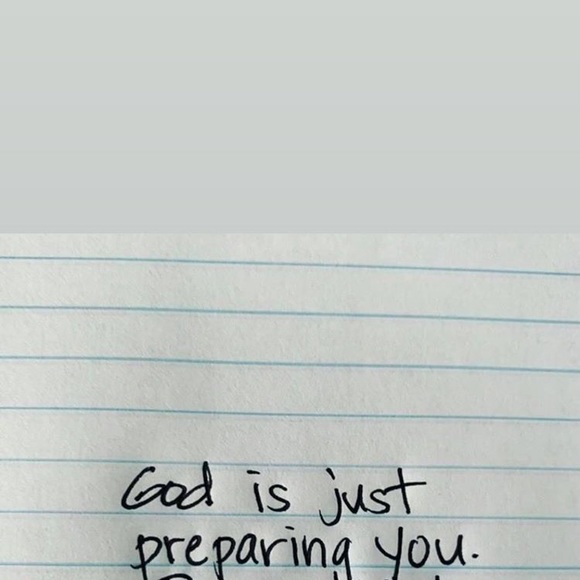 God is just
preparing you.